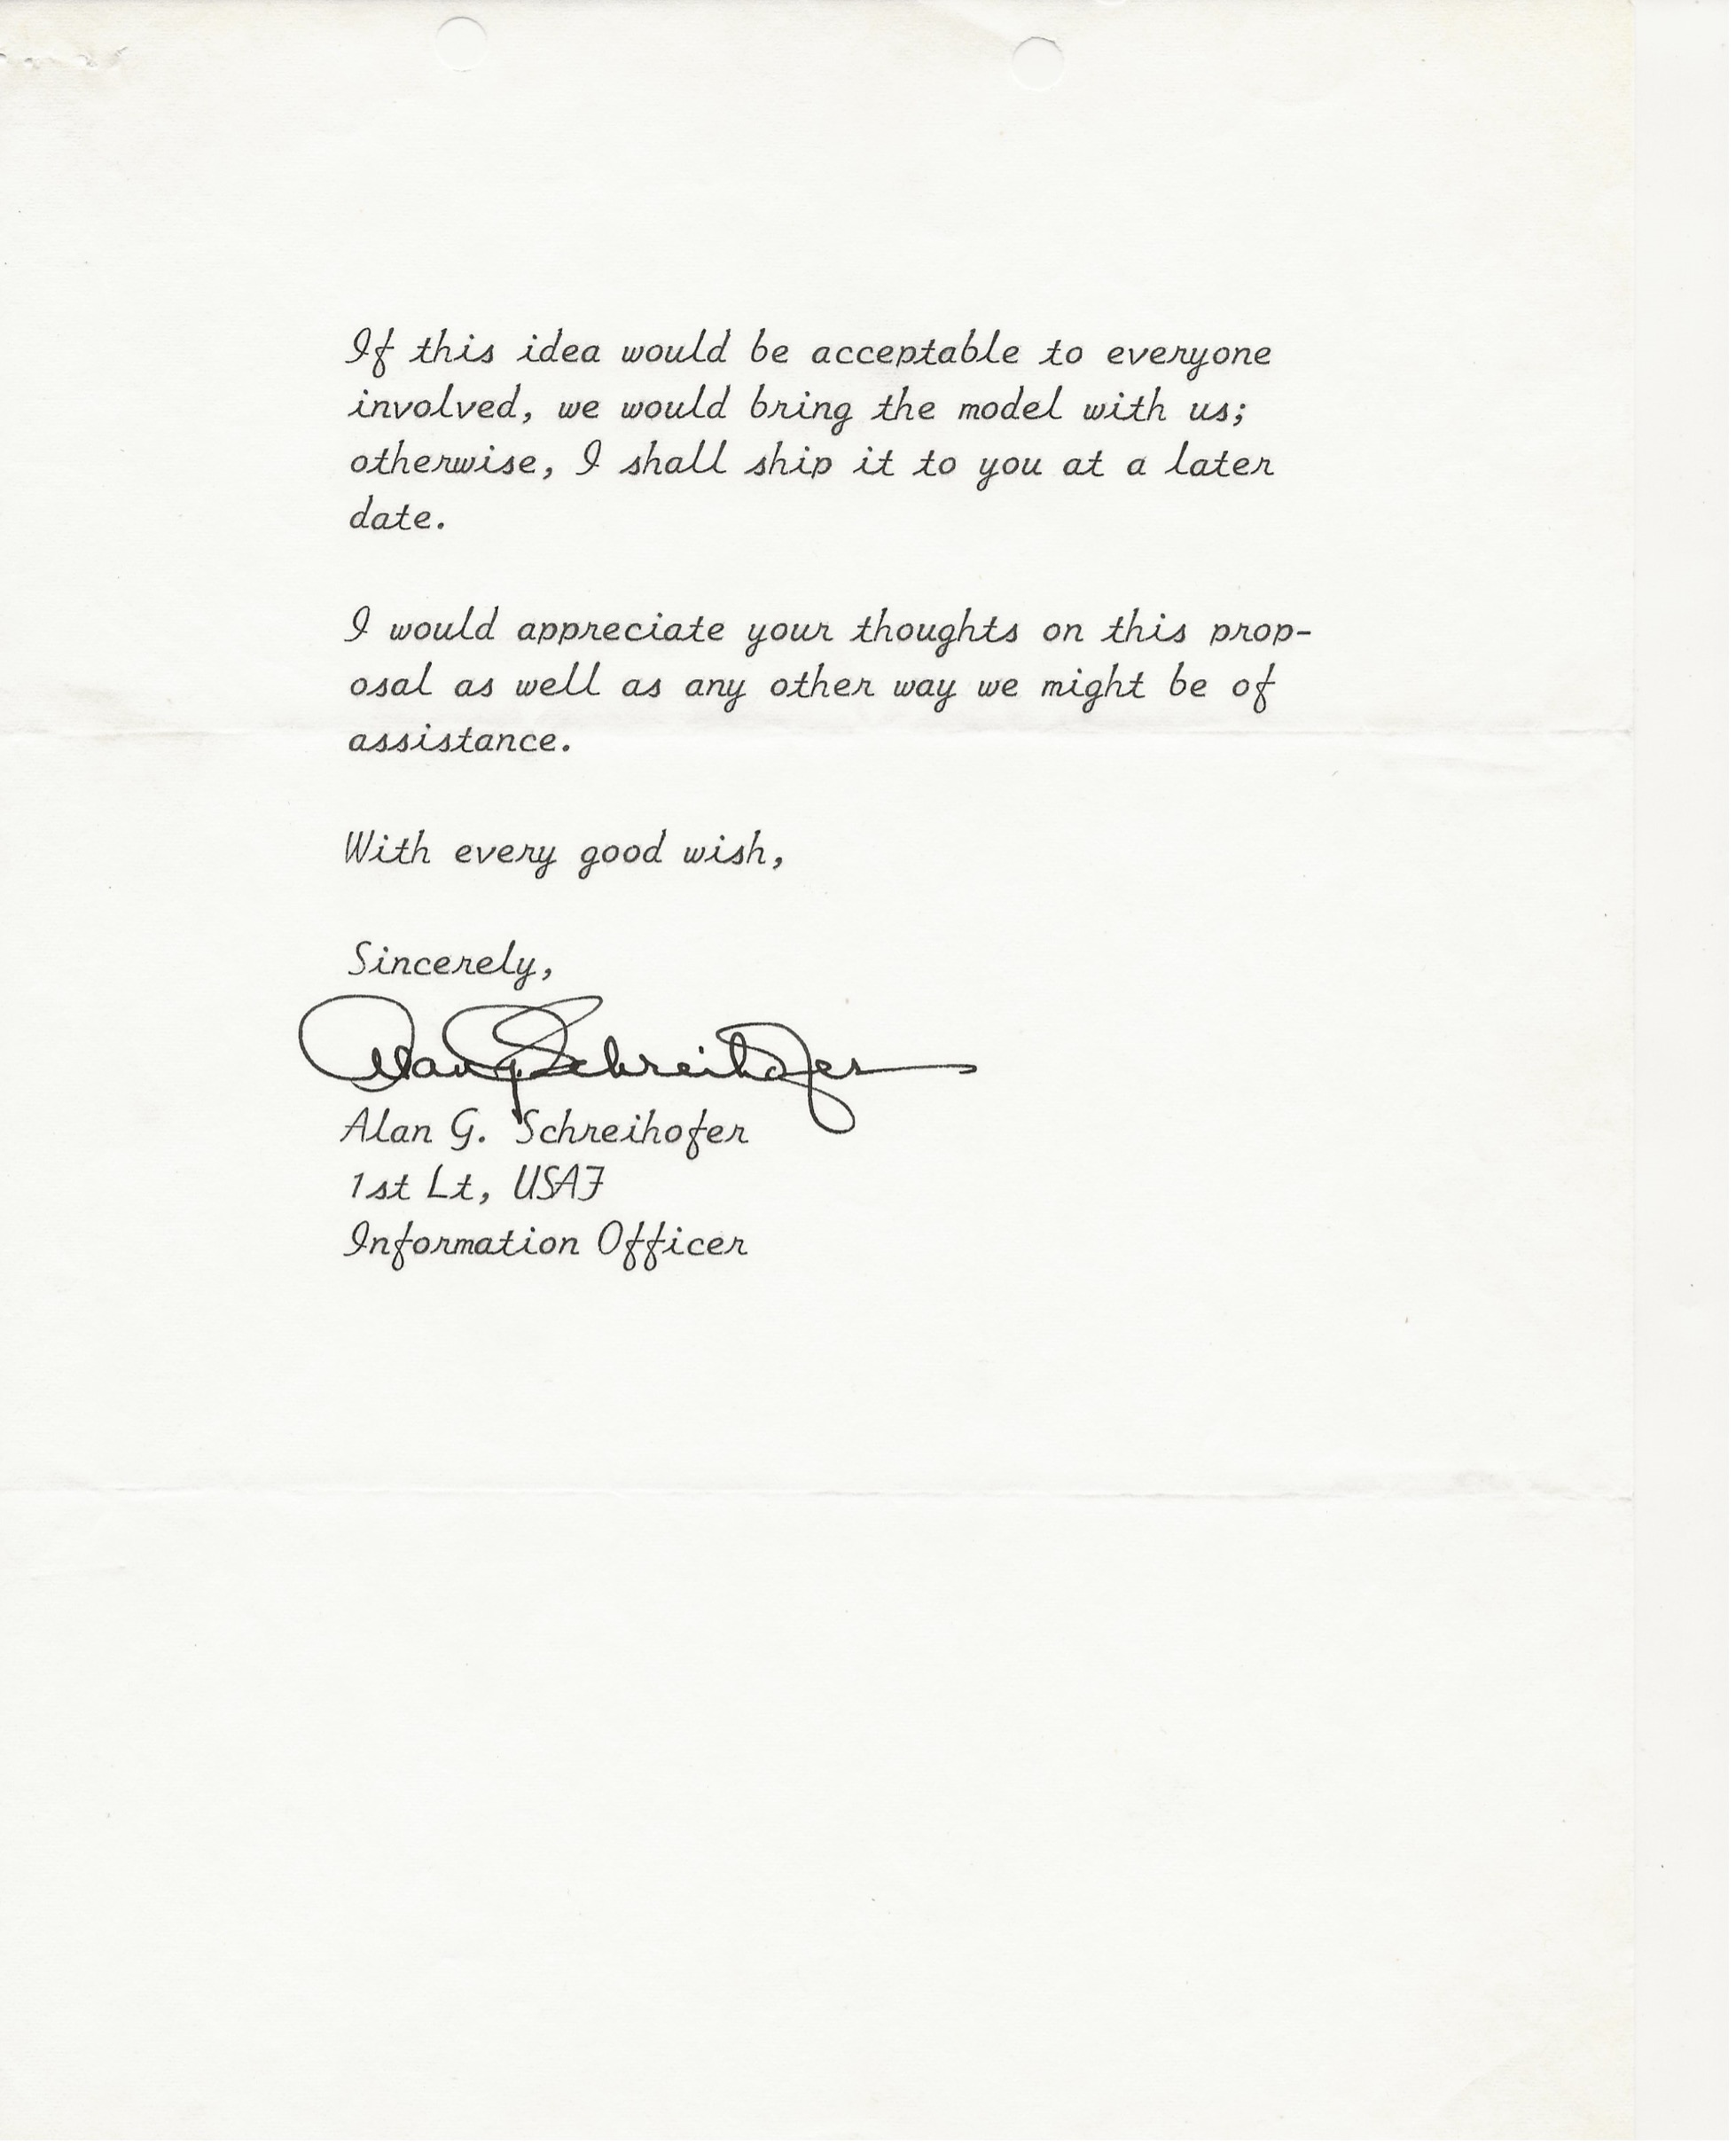 If this idea would be acceptable to everyone
involved, we would bring the model with us;
otherwise, I shall ship it to you at a later
date.
I would appreciate your thoughts on this prop-
osal as well as any other way we might be of
assistance.
With every good wish,
Sincerely,
Alan G. Schreihofer
Alan G. Schreihofer
1st Lt, USAF
Information Officer